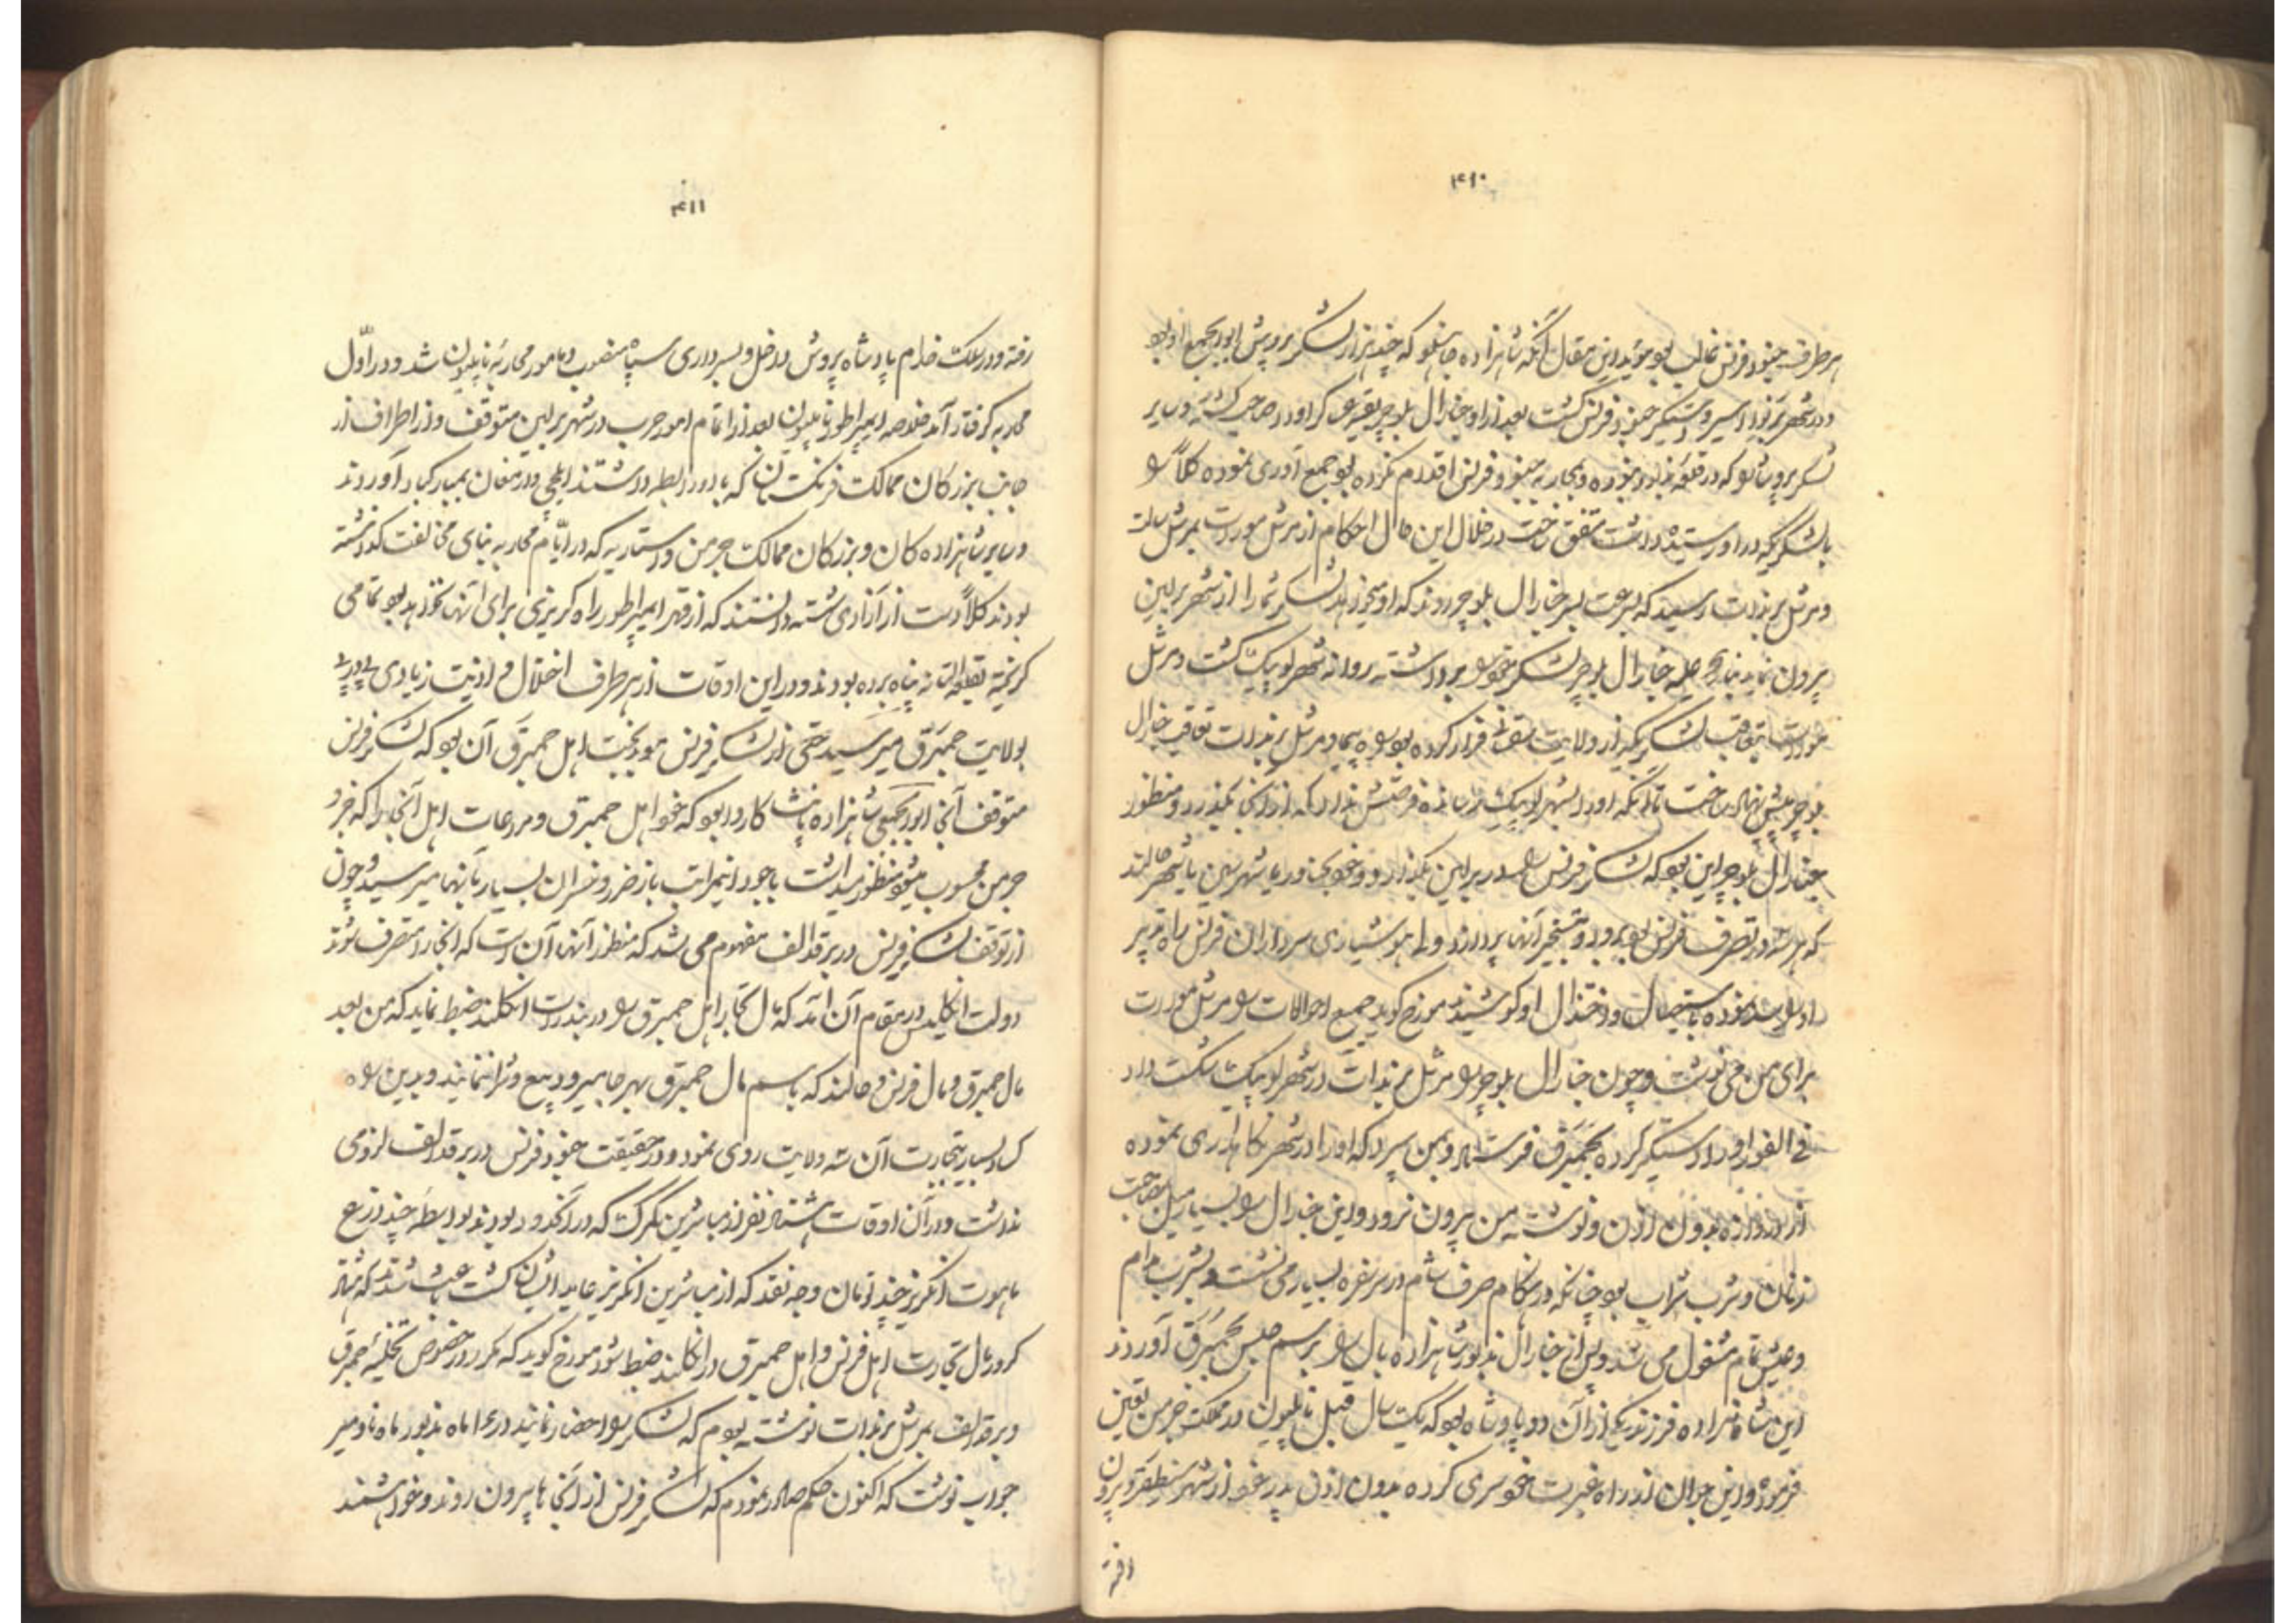 ۴۱۰
هر طرف جنود فرنس غالب بود مؤید این مقال آنکه شاهزاده که چند هزار لشکر پروش ابوابجمع او بود
و در شهر اسیر و دستگیر جنود فرنس گشت بعد از او جنرال بلوچر بقیه لشکر او را صاحب گشته و سایر
لشکر پروش که در قلعه نبوده و بمحاربه جنود فرنس اقدام نکرده بود جمع آوری نموده کلا
با لشکریکه در اورستیده داشت متفق ساخت در خلال این حال احکام از مرشل مورات بمرشل سالت
و مرشل برندات رسید که بسرعت بسر جنرال بلوچر روند که او میخواهد لشکر شما را از شهر برلین
بیرون نماید جنرال بلوچر لشکر خود برداشته روانه شهر لوبیک گشت و مرشل
مورات بتعاقب لشکریکه از ولایت فرار کرده بود ره پیما و مرشل برندات تعاقب جنرال
بلوچر پیش نهاد ساخت تا آنکه او را بشهر لوبیک رسانده فرصتش نداد که از آنجا بگذرد و منظور
جنرال بلوچر این بود که لشکر فرنس در برلین بگذارد و خود بجنود یا شهر
که هر سه در تصرف فرنس بود برود و بتسخیر آنها پردازد ولی هوشیاری سرداران فرنس راه تدبیر
او نموده باستیصال و انخذال او کوشیدند مورخ گوید جمیع احوالات مرشل مورات
برای من می نوشت و چون جنرال بلوچر مرشل برندات در شهر لوبیک شکست داد
فی الفور او را دستگیر کرده بحمبرق فرستاد و بمن سپرد که او را در شهر نگاهداری نموده
از دروازه بدون اذن و نوشته من بیرون نرود و این جنرال بسیار میل بمصاحبت
زنان و شرب شراب بود چنانکه در هنگام صرف شام در سر سفره بسیار می نشست و بشرب مدام
و عیش تمام مشغول می شد و پس از جنرال مذبور شاهزاده بال برسم حبس بحمبرق آوردند
این شاهزاده فرزند یکی از آن دو پادشاه بود که یکسال قبل ناپلیون در مملکت جرمن تعیین
فرموده و این جوان از راه غیرت خودسری کرده بدون اذن پدر خود از شهر بیرون
رفته
۴۱۱
رفته و در سلک خدام پادشاه پروش داخل و بسرداری سپاه منصوب و مامور محاربه ناپلیون شد و در اول
محاربه گرفتار آمد خلاصه امپراطور ناپلیون بعد از اتمام امور حرب در شهر برلین متوقف و از اطراف از
جانب بزرگان ممالک فرنگستان که با او رابطه داشتند ایلچی و ارمغان بمبارکباد آوردند
و سایر شاهزاده کان و بزرگان ممالک جرمن و استاریه که در ایام محاربه بنای مخالفت گذاشته
بودند کلا دست از آزادی شسته دانستند که از قهر امپراطور راه گریزی برای آنها نخواهد بود تمامی
گریخته بقلعه پناه برده بودند و در این اوقات از هر طرف اختلال و اذیت زیادی پی در پی
بولایت حمبرق میرسید حتی از لشکر فرنس موجبت اهل حمبرق آن بود که لشکر فرنس
متوقف آنجا ابوابجمعی شاهزاده بود که خود اهل حمبرق و مراعات اهل آنجا را که جزو
جرمن محسوب میشود منظور میداشت باوجود اینمراتب باز ضرر و خسران بسیار بآنها میرسید و چون
از توقف لشکر فرنس در برقدالف مفهوم می شد که منظور آنها آن است که آنجا را متصرف شوند
دولت انکلیس در مقام آن آمد که مال تجار اهل حمبرق در بندرات انکلند ضبط نماید که من بعد
مال حمبرق و مال فرنس و هالند که باسم مال حمبرق بهر جا میبرود بیع و شرا ننمایند و بدین
کساد بسیار بتجارت آن سه ولایت روی نمود و در حقیقت جنود فرنس در برقدالف لزومی
نداشت و در آن اوقات هشتاد نفر از مباشرین گمرک که در آنحدود بودند بواسطه چند ذرع
ماهوت انگریز و چند تومان وجه نقد که از مباشرین انکریز عاید ایشان گشت باعث شدند که هشتاد
کرور مال تجارت اهل فرنس و اهل حمبرق در انکلند ضبط شود مورخ گوید که مکرر در خصوص تخلیه حمبرق
و برقدالف بمرشل برندات نوشته بودم که لشکر را احضار نمایند در ۱۶ ماه مذبور ماه ناومبر
جواب نوشت که اکنون حکم صادر نمودم که لشکر فرنس از آنجاها بیرون روند و خواهشمند